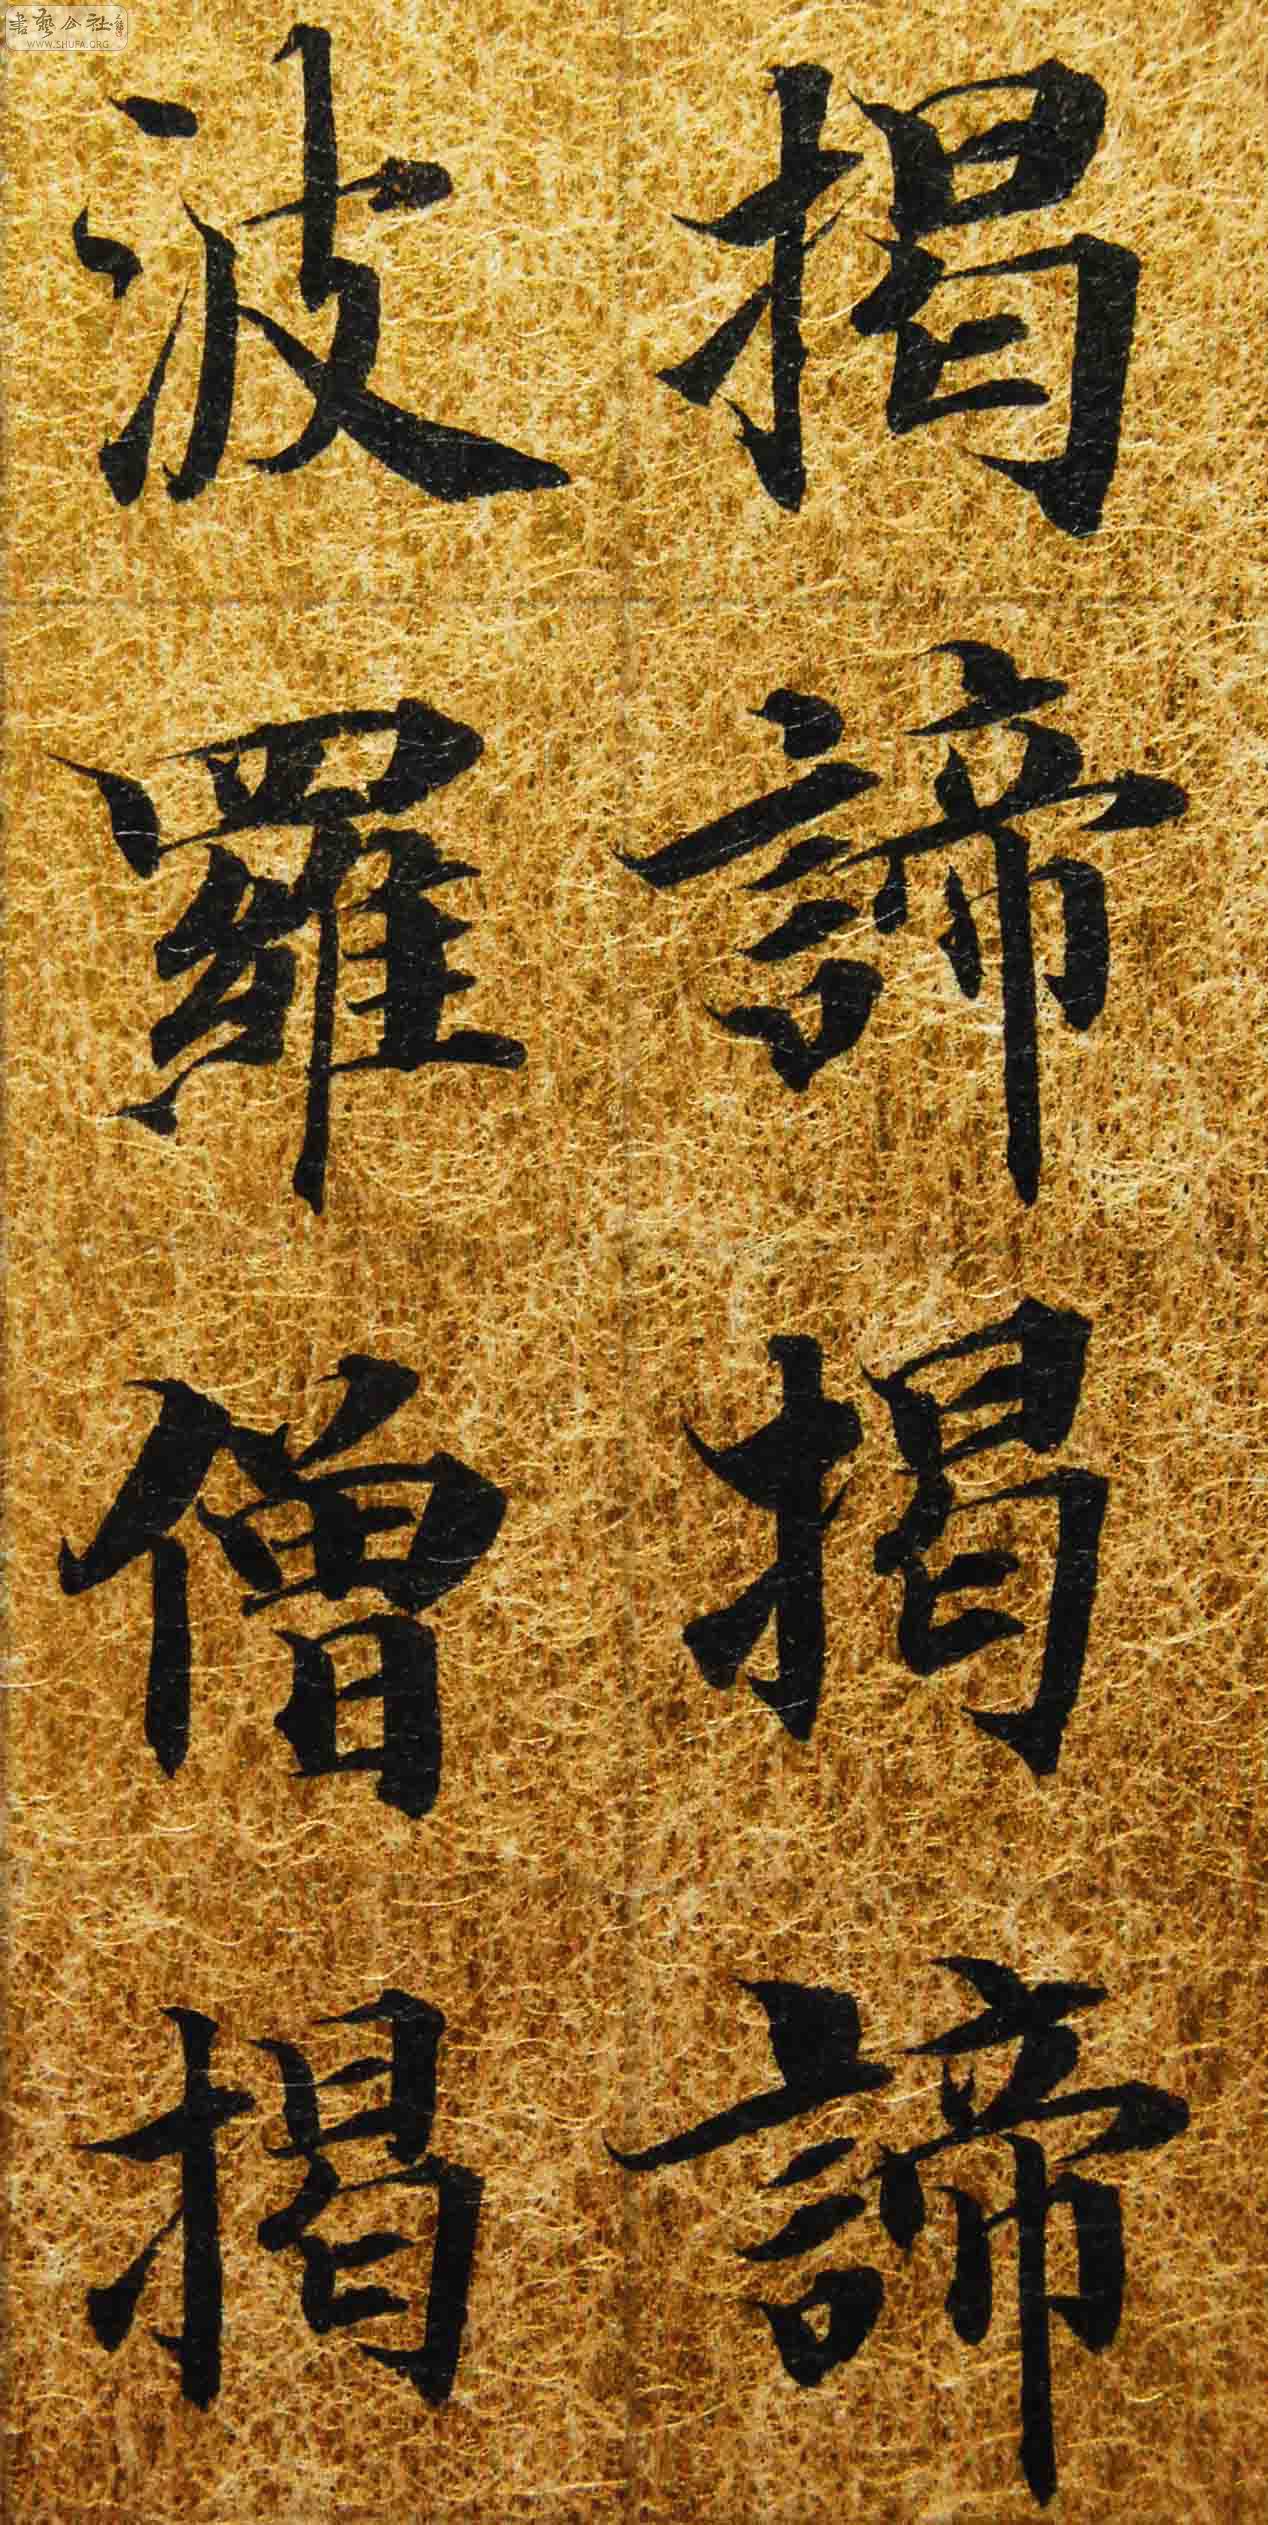 揭諦揭諦
波羅僧揭
書藝公社
WWW.SHUFA.ORG